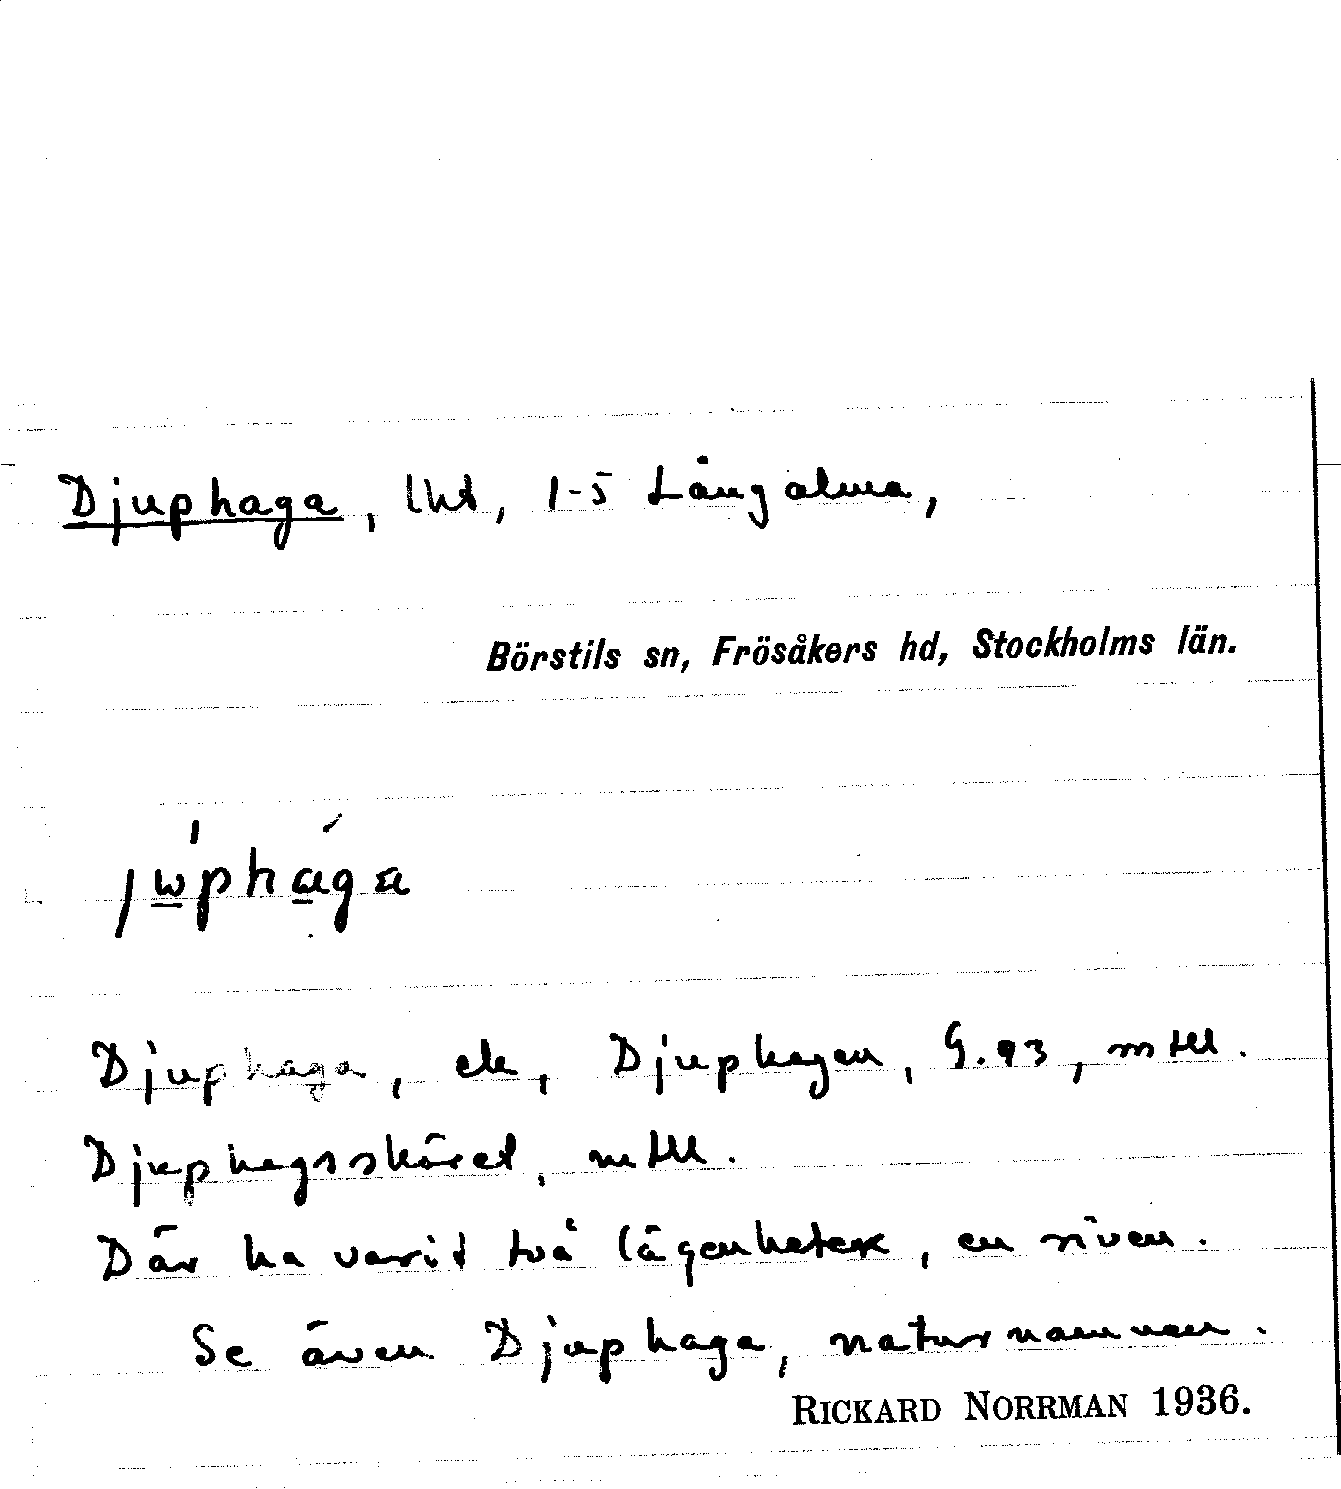 Djuphaga, lht, 1-5 Långalma,
Börstils sn, Frösåkers hd, Stockholms län.
Djuphaga, ek, Djuphagen, G.93, mtbl.
Djuphagsskäret, mtbl.
Där ha varit två lägenheter, en riven.
Se även Djuphaga, naturnamnen.
RICKARD NORRMAN 1936.